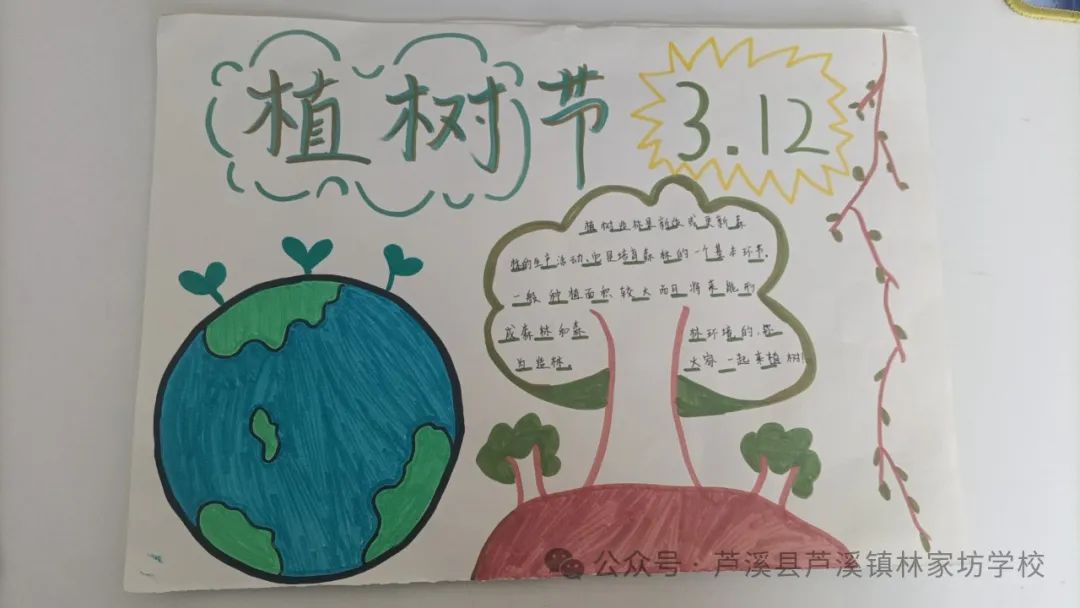 植树节
3.12
植树造林是新造或更新森
林的生产活动,它是培育森林的一个基本环节。
一般种植面积较大而且将来能形
成森林和森 林环境的,称
为造林。 大家一起来植树!
公众号·芦溪县芦溪镇林家坊学校